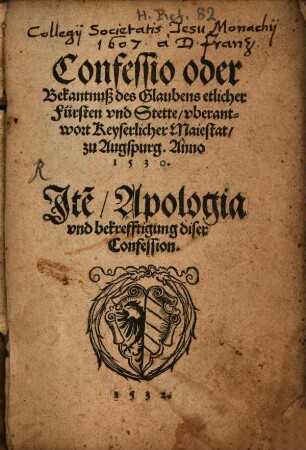 H. Ref. 82
Collegij Societatis Iesu Monachij
1607 a D. franz.
Confessio oder
Bekantnuß des Glaubens etlicher
Fürsten vnd Stette / vberant-
wort Keyserlicher Maiestat /
zu Augspurg. Anno
1530.
R
Jtē / Apologia
vnd bekrefftigung diser
Confession.
1532.